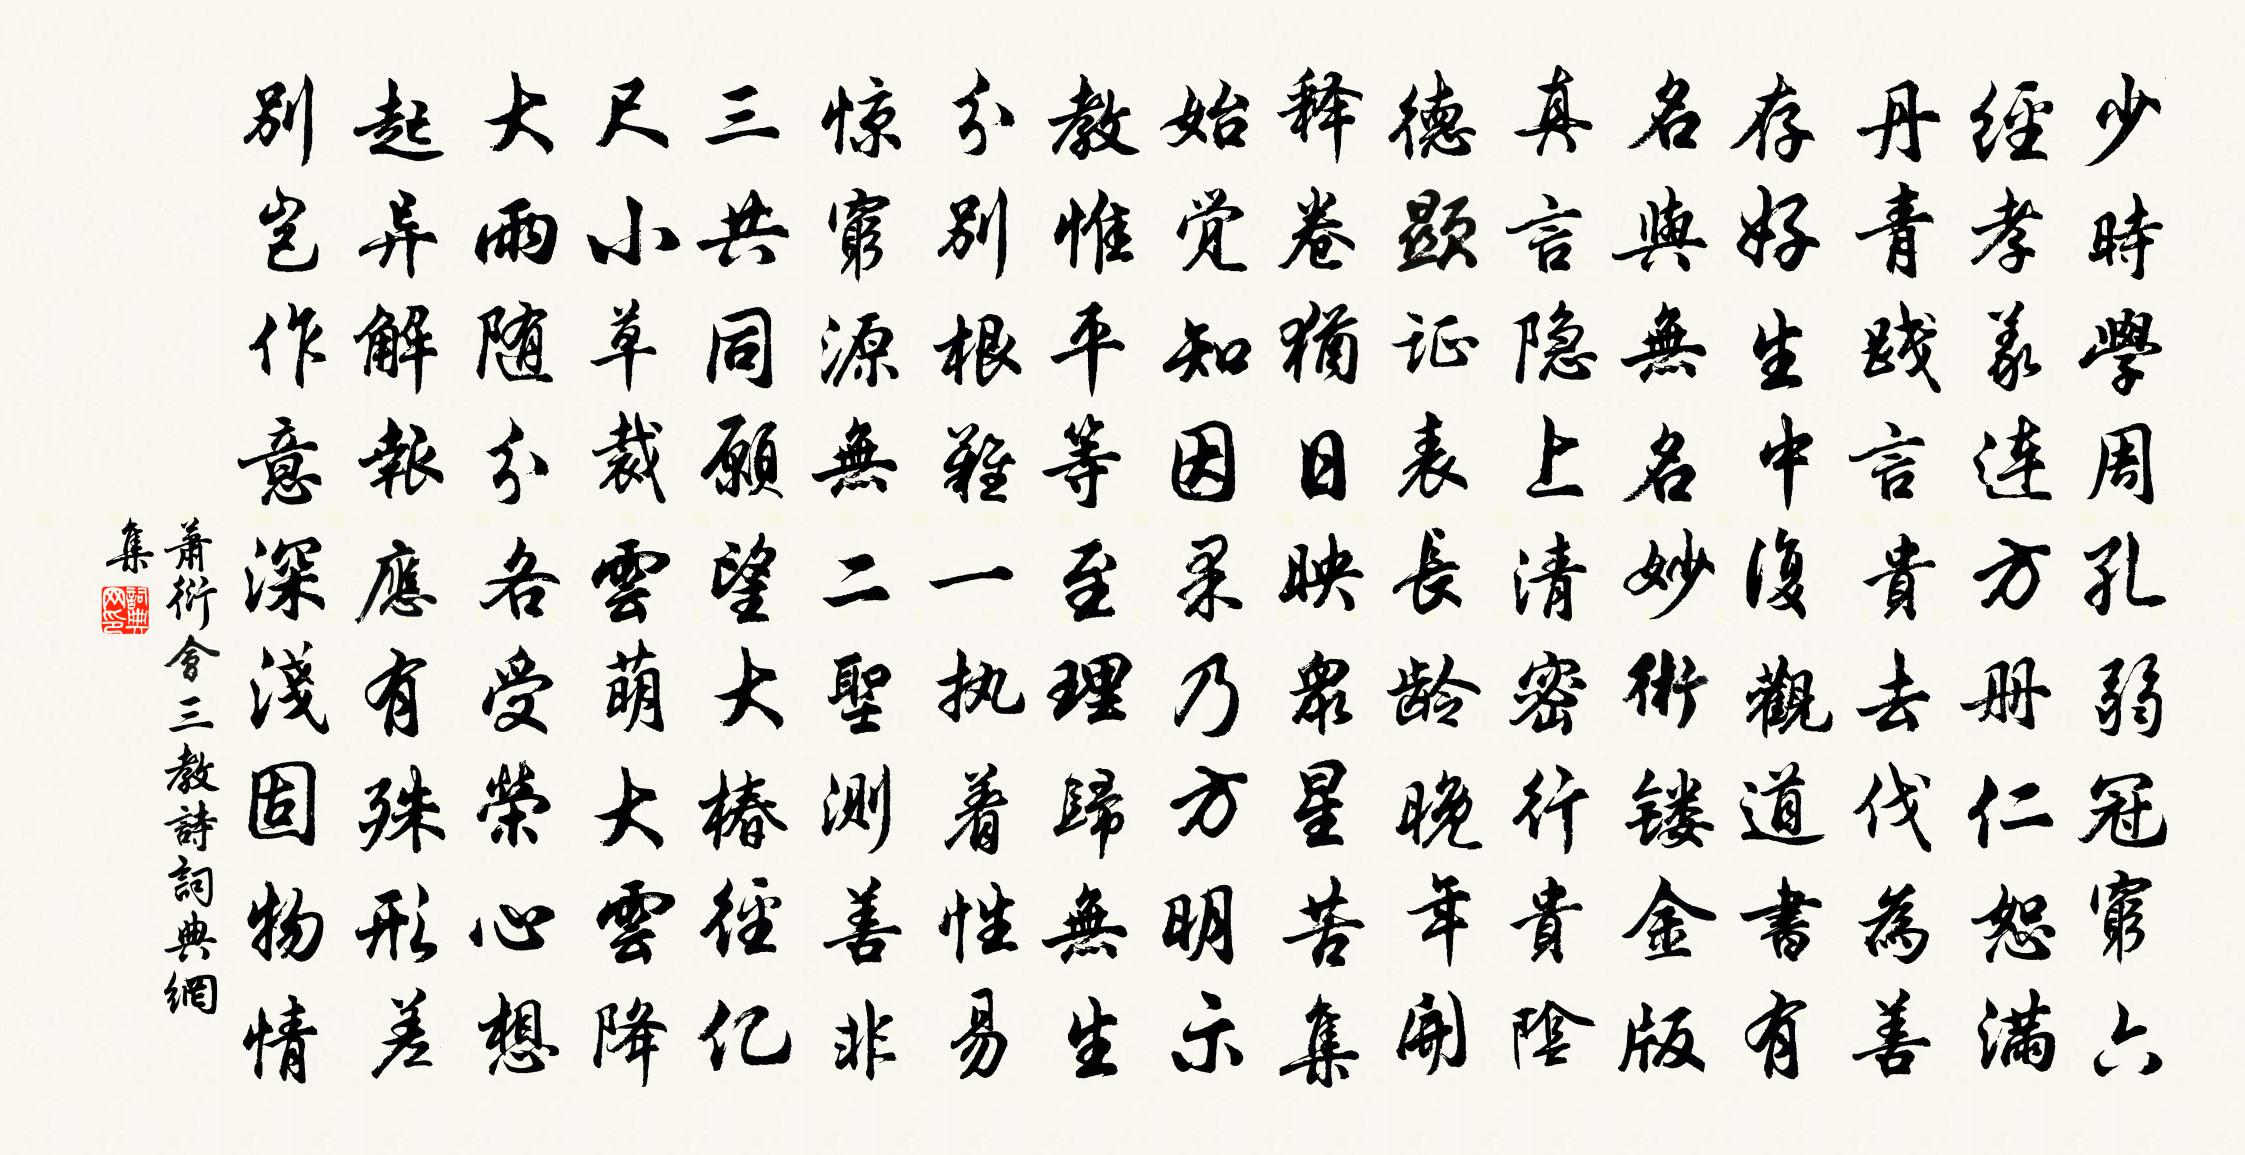 少時學周孔弱冠窮六
經孝義连方册仁恕滿
丹青践言貴去伐為善
存好生中復觀道書有
名與無名妙術镂金版
真言隐上清密行貴陰
德顯证表長龄晚年開
释卷猶日映衆星苦集
始觉知因果乃方明示
教惟平等至理歸無生
分别根難一执着性易
惊窮源無二聖测善非
三共同願望大椿徑亿
尺小草裁雲萌大雲降
大雨随分各受榮心想
起异解報應有殊形差
别岂作意深淺固物情
蕭衍會三教詩詞典網
集
詞典網印